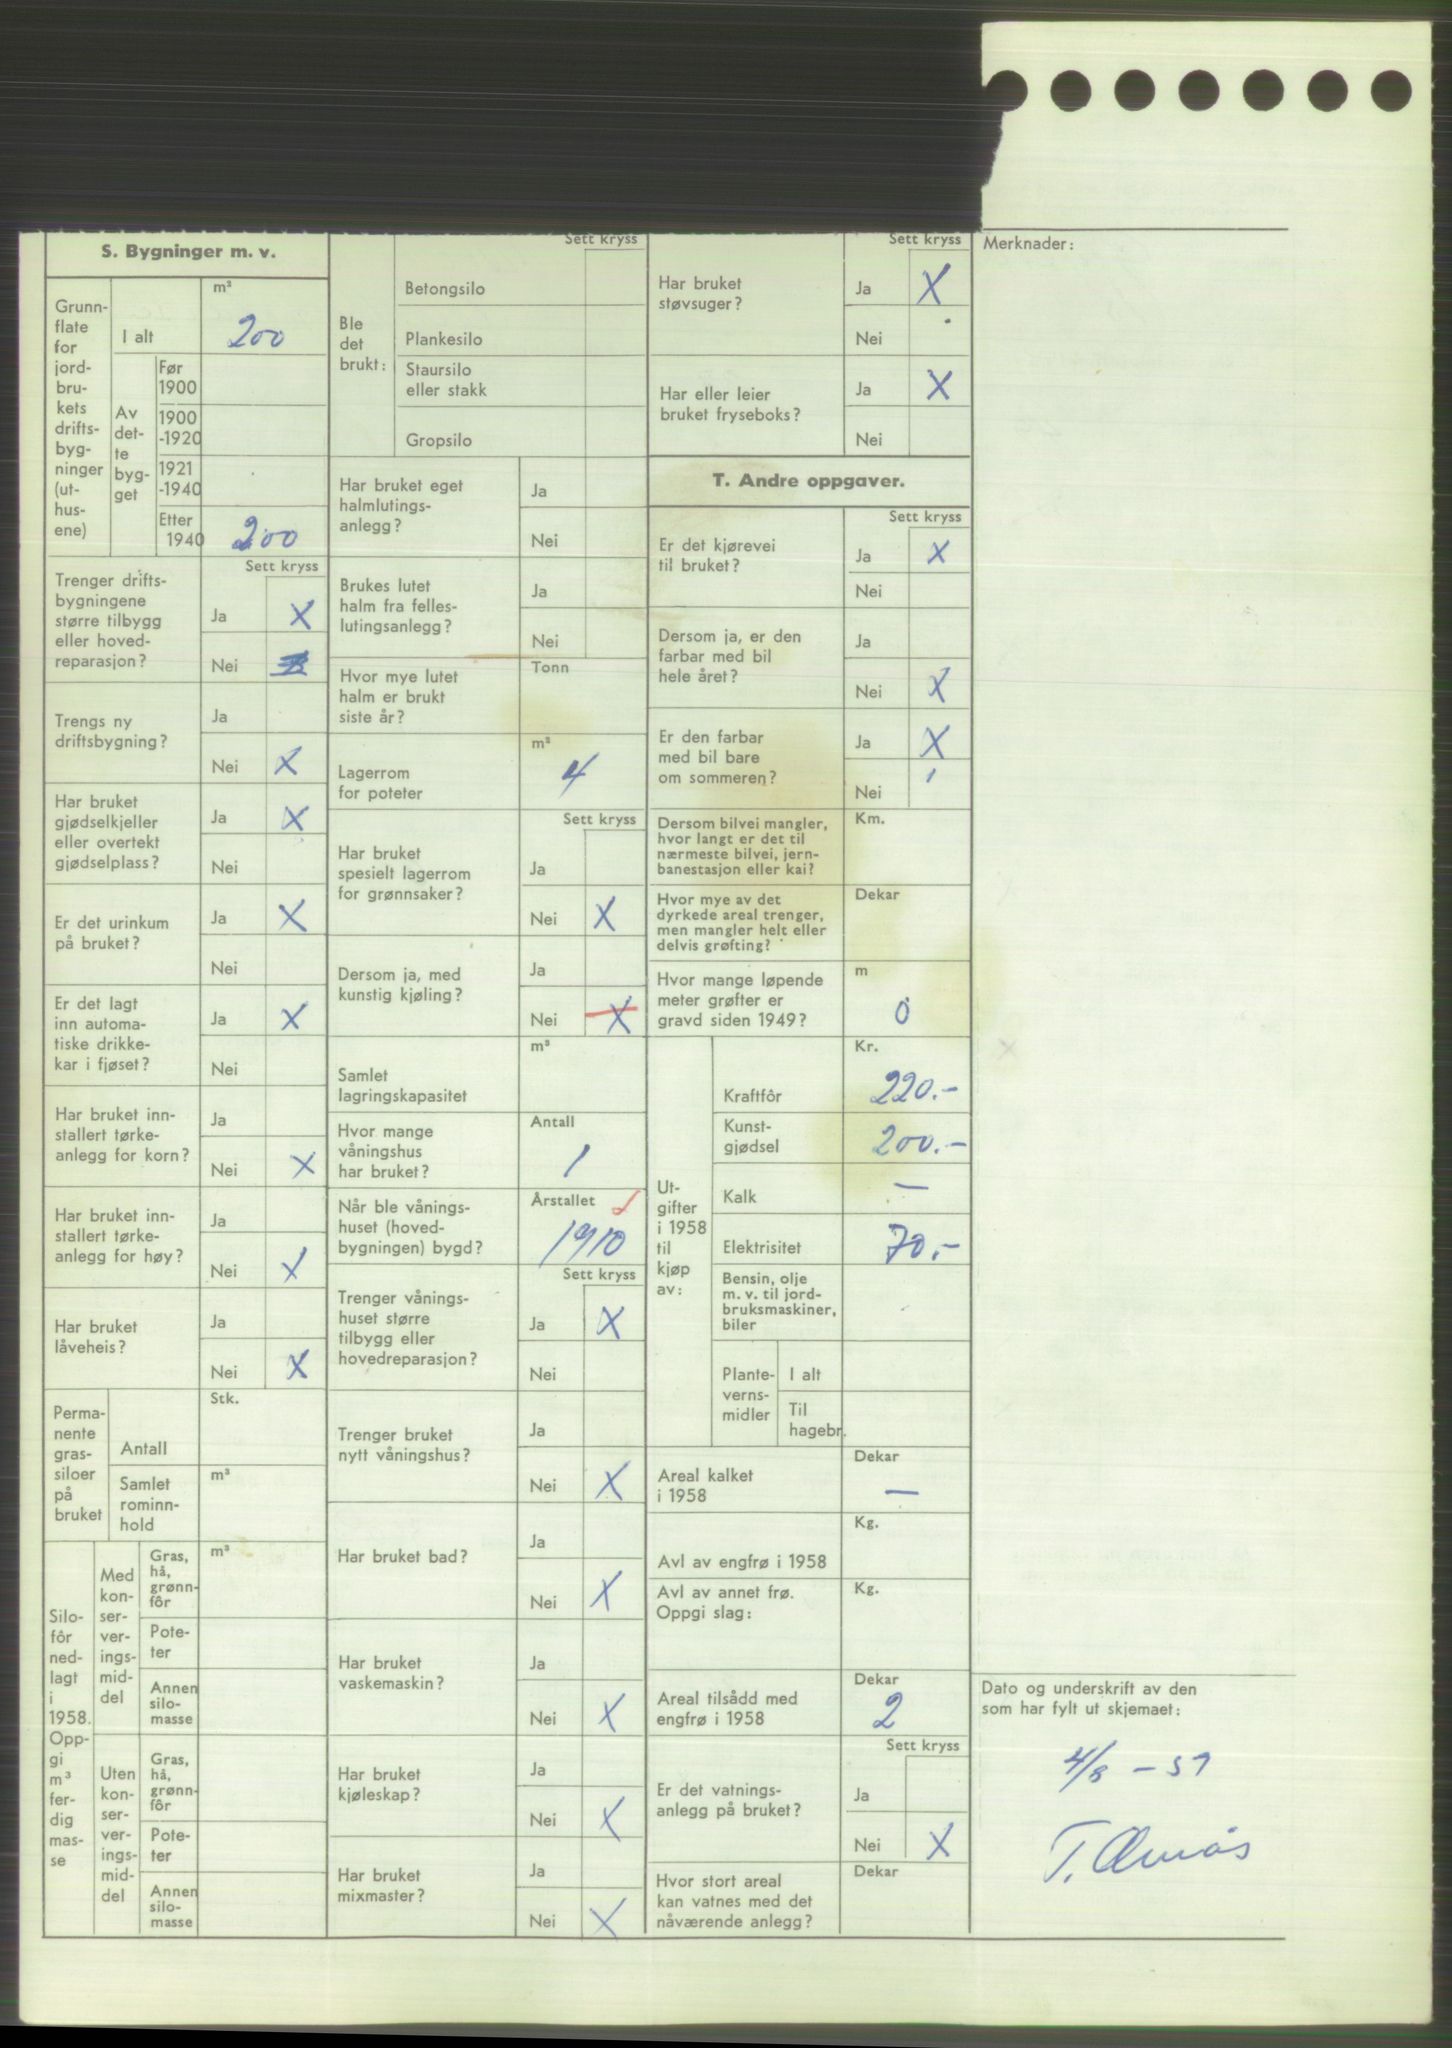 S. Bygninger m. v.
Grunn-
flate
for
jord-
bru-
kets
drifts-
byg-
ninger
(ut-
hus-
ene)
I alt
m²
200
Av
det-
te
byg-
get
Før
1900
1900
-1920
1921
-1940
Etter
1940
200
Sett kryss
Trenger drifts-
bygningene
større tilbygg
eller hoved-
reparasjon?
Ja X
Nei
Trengs ny
driftsbygning?
Ja
Nei X
Har bruket
gjødselkjeller
eller overtekt
gjødselplass?
Ja X
Nei
Er det urinkum
på bruket?
Ja X
Nei
Er det lagt
inn automa-
tiske drikke-
kar i fjøset?
Ja X
Nei
Har bruket inn-
stallert tørke-
anlegg for korn?
Ja
Nei X
Har bruket inn-
stallert tørke-
anlegg for høy?
Ja
Nei X
Har bruket
låveheis?
Ja
Nei X
Perma-
nente
gras-
siloer
på
bruket
Antall
Stk.
Samlet
rominn-
hold
m³
Silo-
fôr
ned-
lagt
i
1958.
Opp-
gi
m³
fer-
dig
mas-
se
Med
kon-
ser-
ver-
ings-
mid-
del
Gras,
hå,
grønn-
fôr
m³
Pote-
ter
Annen
silo-
masse
Uten
kon-
ser-
ver-
ings-
mid-
del
Gras,
hå,
grønn-
fôr
Pote-
ter
Annen
silo-
masse
Sett kryss
Ble
det
brukt:
Betongsilo
Plankesilo
Staursilo
eller stakk
Gropsilo
Har bruket eget
halmlutings-
anlegg?
Ja
Nei
Brukes lutet
halm fra felles-
lutingsanlegg?
Ja
Nei
Hvor mye lutet
halm er brukt
siste år?
Tonn
Lagerrom
for poteter
m³
4
Sett kryss
Har bruket
spesielt lagerrom
for grønnsaker?
Ja
Nei X
Dersom ja, med
kunstig kjøling?
Ja
Nei X
Samlet
lagringskapasitet
m³
Hvor mange
våningshus
har bruket?
Antall
1
Når ble vånings-
huset (hoved-
bygningen) bygd?
Årstallet
1910
Sett kryss
Trenger vånings-
huset større
tilbygg eller
hovedreparasjon?
Ja X
Nei
Trenger bruket
nytt våningshus?
Ja
Nei X
Har bruket bad?
Ja
Nei X
Har bruket
vaskemaskin?
Ja
Nei X
Har bruket
kjøleskap?
Ja
Nei X
Har bruket
mixmaster?
Ja
Nei X
Sett kryss
Har bruket
støvsuger?
Ja X
Nei
Har eller leier
bruket fryseboks?
Ja X
Nei
T. Andre oppgaver.
Sett kryss
Er det kjørevei
til bruket?
Ja X
Nei
Dersom ja, er den
farbar med bil
hele året?
Ja
Nei X
Er den farbar
med bil bare
om sommeren?
Ja X
Nei
Dersom bilvei mangler,
hvor langt er det til
nærmeste bilvei, jern-
banestasjon eller kai?
Km.
Hvor mye av det
dyrkede areal trenger,
men mangler helt eller
delvis grøfting?
Dekar
Hvor mange løpende
meter grøfter er
gravd siden 1949?
m
0
Ut-
gifter
i 1958
til
kjøp
av:
Kr.
Kraftfôr 220.-
Kunst-
gjødsel 200.-
Kalk —
Elektrisitet 70.-
Bensin, olje
m. v. til jord-
bruksmaskiner,
biler
Plante-
verns-
midler
I alt
Til
hagebr.
Areal kalket
i 1958
Dekar
—
Avl av engfrø i 1958
Kg.
Avl av annet frø.
Oppgi slag:
Kg.
Areal tilsådd med
engfrø i 1958
Dekar
2
Sett kryss
Er det vatnings-
anlegg på bruket?
Ja
Nei X
Hvor stort areal
kan vatnes med det
nåværende anlegg?
Dekar
Merknader:
Dato og underskrift av den
som har fylt ut skjemaet:
4/8 - 59